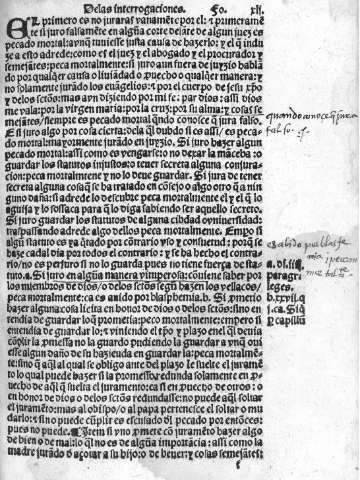 De las interrogaciones. Fo. xli.
El primero es no juraras vanamēte por el: ⁊ primeramē
te si juro falsamēte en algūa corte delāte de algun juez es
pecado mortal: avnq̄ tuuiesse justa causa de hazerlo: y el q̄ indu
ze a esto adrede: como es el juez y el abogado y el procurador y
semejātes: peca mortalmēte: si juro aun fuera de juyzio habla
do por qualq̄er causa o liuiādad o ꝓuecho o qualq̄er manera: y
no solamente jurādo los euāgelios: ⁊ por el cuerpo de jesu xp̄o
y delos sctōs: mas avn diziendo por mi fe: par dios: assi dios
me vala: por la virgen maria: por la cruz: por su alma: y cosas se
mejātes/ siempre es pecado mortal qn̄do conosce q̄ jura falso.
Si juro algo por cosa cierta: dela q̄l dubdo si es assi/ es peca-
do mortal: mayormente jurādo en juyzio. Si juro hazer algun
pecado mortal: assi como es vengarse: no dexar la māceba: o
guardar los statutos injustos: o tener secreta alguna conjura-
cion: peca mortalmente y no lo deue guardar. Si jura de tener
secreta alguna cosa q̄ se ha tratado en cōsejo o algo otro q̄ a nin
guno daña: si adrede lo descubre peca mortalmente el y el q̄ lo
aguija y lo sossaca para q̄ lo diga sabiendo ser aquello secreto.
Si juro guardar los statutos de alguna cibdad o vniuersidad:
traspassando adrede algo dellos peca mortalmente. Empo si
algū statuto es ya q̄tado por cōtrario vso y consuetud: porq̄ se
haze cada dia por todos el contrario: y se ha hecho el contra-
rio/ no es perjuro si no lo guarda pues no tiene fuerça de sta-
tuto. a. Si juro en algūa manera vituperosa: cōuiene saber por
los miembros de dios/ o delos sctōs segū hazen los vellacos/
peca mortalmente: ca es auido por blasphemia. b. Si ꝓmetio
hazer alguna cosa licita en honor de dios o delos sctōs: sino en
tendia de guardar lo q̄ ꝓmetia: peco mortalmente: empero si
entendia de guardar lo: ⁊ viniendo el tp̄o y plazo en el q̄l deuia
cūplir la ꝓmessa no la guardo pudiendo la guardar a vnq̄ oui
esse algun daño de su hazienda en guardar la: peca mortalmē-
te: sino q̄ aq̄l al qual se obligo ante del plazo le suelte el juramē
to lo qual puede hazer si la promessa redunda solamente en ꝓ-
uecho de aq̄l q̄ suelta el juramento: ca si en ꝓuecho de otros: o
en honor de dios o delos sctōs redundasse: no puede aq̄l soltar
el juramēto: mas al obispo/ o al papa pertenesce el soltar o mu
darlo: ⁊ sino puede cūplir es escusado dl̄ pecado por entōces:
pues no puede. Item si vno ꝓmete cō juramēto hazer algo
de bien o de mal: lo q̄l no es de algūa importācia: assi como la
madre jurādo d̄ açotar a su hijo: o de beuer: y cosas semejātes:
f
quando conoce q̄ jura
falso.
a. dl. iii.
paragri.
leges.
b. xxvii. q̄
i. ca. Si q̄
y capillū